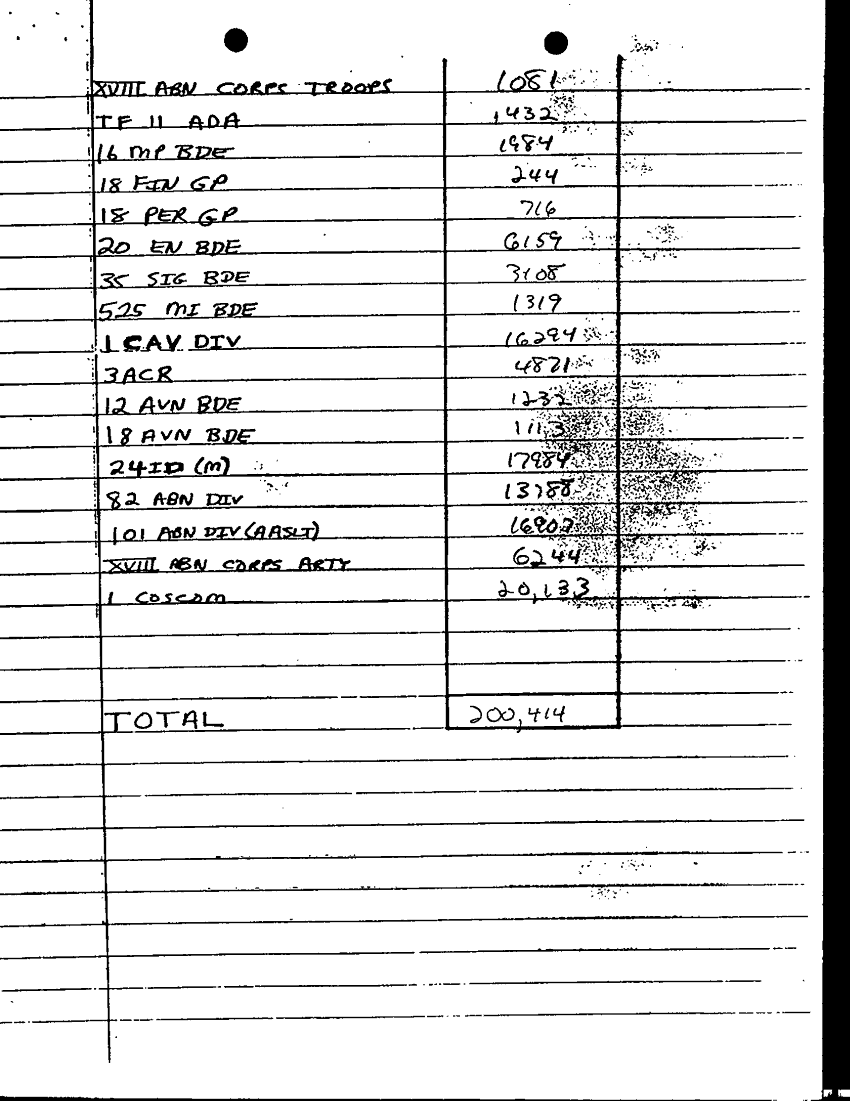 XVIII ABN CORPS TROOPS 1081
TF 11 ADA 1432
16 MP BDE 1984
18 FIN GP 244
18 PER GP 716
20 EN BDE 6159
35 SIG BDE 3108
525 MI BDE 1319
1 CAV DIV 16294
3 ACR 4821
12 AVN BDE 1232
18 AVN BDE 1113
24 ID (M) 17984
82 ABN DIV 13788
101 ABN DIV (AASLT) 16907
XVIII ABN CORPS ARTY 6244
1 COSCOM 20,133
TOTAL 200,414